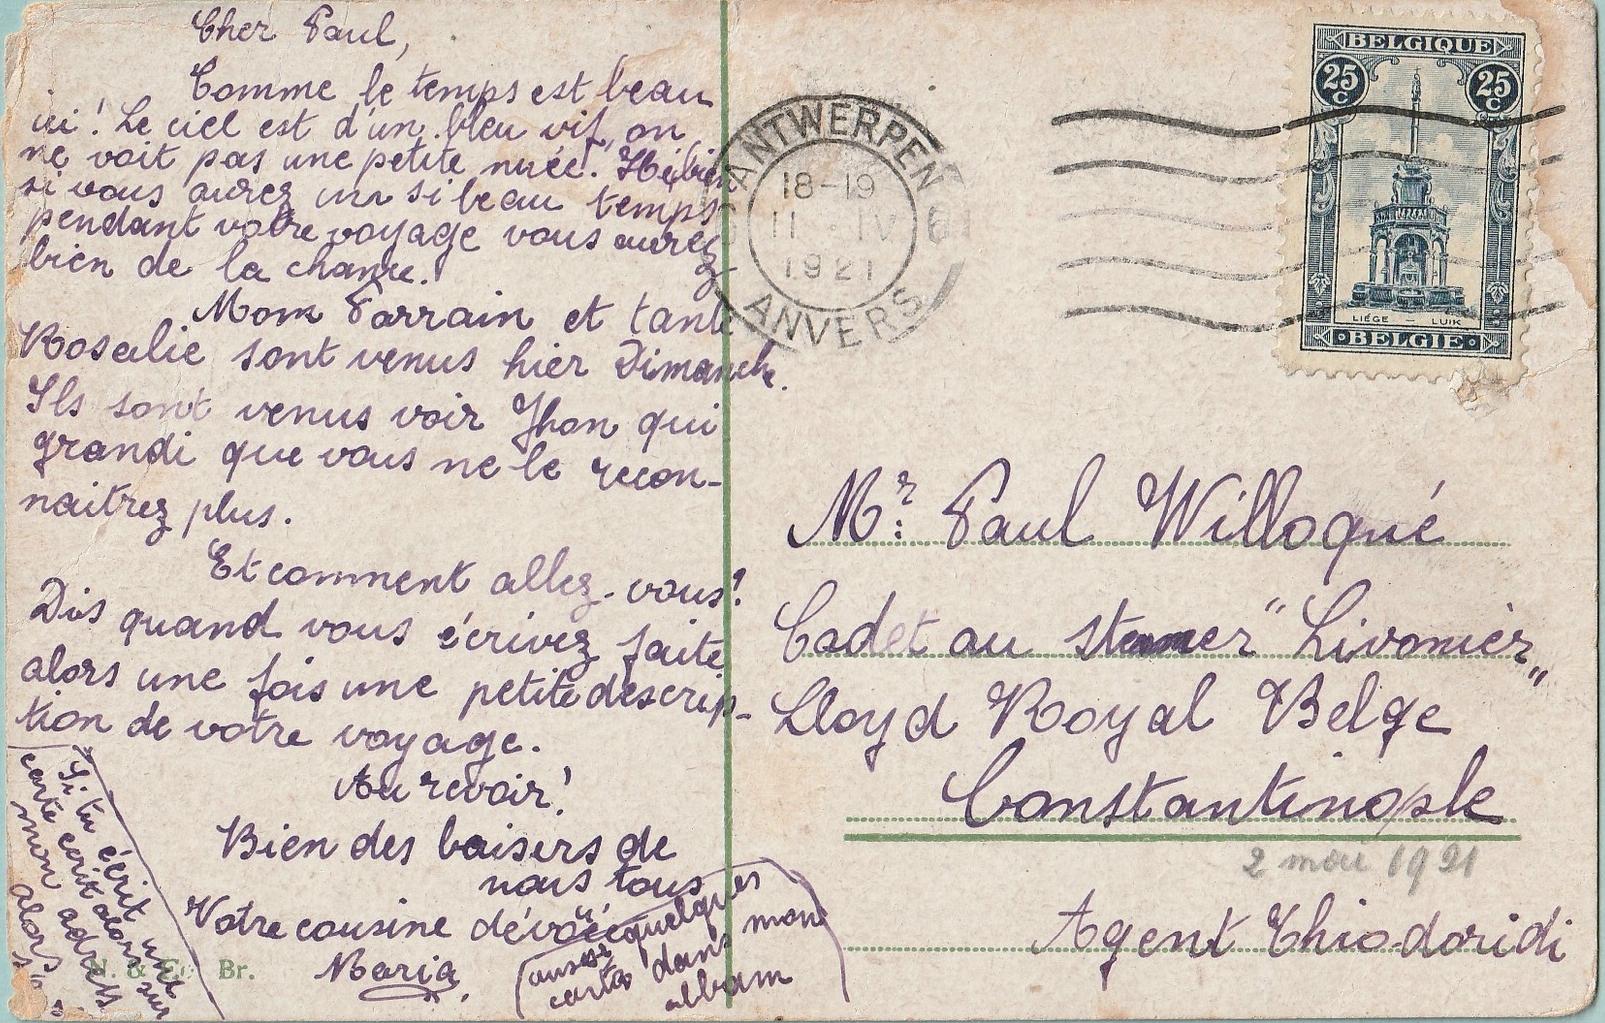 Cher Paul,
Comme le temps est beau
ici! Le ciel est d'un bleu vif, on
ne voit pas une petite nuée. Hé bien
si vous aurez un si beau temps
pendant votre voyage vous aurez
bien de la chance.
Mom Parrain et tante
Rosalie sont venus hier Dimanche.
Ils sont venus voir Jhon qui
grandi que vous ne le recon-
naitrez plus.
Et comment allez-vous?
Dis quand vous écrivez faite
alors une fois une petite descrip-
tion de votre voyage.
Au revoir!
Bien des baisers de
nous tous
Votre cousine dévouée
Maria.
Si tu écrit une
carte écrit alors sur
mon adress
alors
quelques
cartes dans mon
album
N. & Co. Br.
ANTWERPEN
18-19
11 · IV
1921
ANVERS
BELGIQUE
25 C
25 C
LIÉGE — LUIK
BELGIË
Mr: Paul Willoqué
Cadet au steamer "Livonier"
Lloyd Royal Belge
Constantinople
2 mai 1921
Agent Thiodoridi